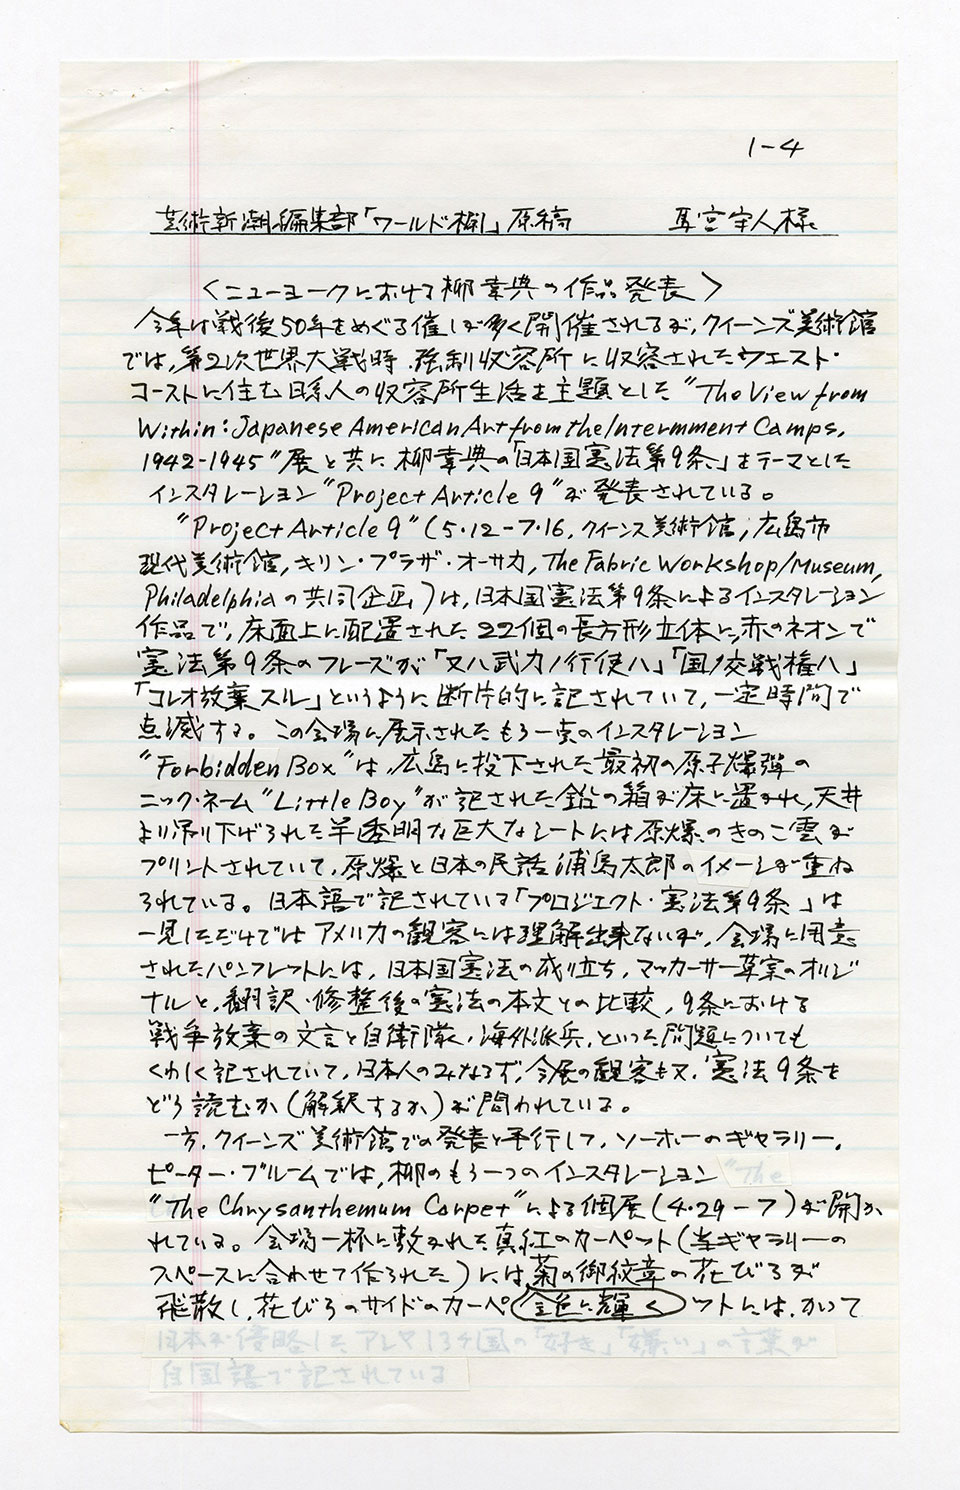 1-4
芸術新潮編集部「ワールド欄」原稿 耳宮宇人様
<ニューヨークにおける柳幸典の作品発表>
今年は戦後50年をめぐる催しが多く開催されるが、クイーンズ美術館
では、第2次世界大戦時、強制収容所に収容されたウエスト・
コーストに住む日系人の収容所生活を主題とした "The View from
Within: Japanese American Art from the Internment Camps,
1942-1945" 展と共に柳幸典の「日本国憲法第9条」をテーマとした
インスタレーション "Project Article 9" が発表されている。
"Project Article 9" (5.12-7.16, クイーンズ美術館, 広島市
現代美術館, キリン・プラザ・オーサカ, The Fabric Workshop/Museum,
Philadelphiaの共同企画)は、日本国憲法第9条によるインスタレーション
作品で、床面上に配置された22個の長方形立体に、赤のネオンで
憲法第9条のフレーズが「又ハ武力ノ行使ハ」「国ノ交戦権ハ」
「コレオ放棄スル」というように断片的に記されていて、一定時間で
点滅する。この会場に展示されたもう一点のインスタレーション
"Forbidden Box" は、広島に投下された最初の原子爆弾の
ニック・ネーム "Little Boy" が記された鉛の箱が床に置かれ、天井
より吊り下げられた半透明な巨大なシートには原爆のきのこ雲が
プリントされていて、原爆と日本の民話浦島太郎のイメージが重ね
られている。日本語で記されている「プロジェクト・憲法第9条」は
一見しただけではアメリカの観客には理解出来ないが、会場に用意
されたパンフレットには、日本国憲法の成り立ち、マッカーサー草案のオリジ
ナルと、翻訳・修整後の憲法の本文との比較、9条における
戦争放棄の文言と自衛隊、海外派兵、といった問題についても
くわしく記されていて、日本人のみならず、今展の観客も又、憲法9条を
どう読むか(解釈するか)が問われている。
一方、クイーンズ美術館での発表と平行して、ソーホーのギャラリー、
ピーター・ブルームでは、柳のもう一つのインスタレーション "The
"The Chrysanthemum Carpet" による個展(4.29-7)が開か
れている。会場一杯に敷かれた真紅のカーペット(当ギャラリーの
スペースに合わせて作られた)には、菊の御紋章の花びらが
飛散し、花びらのサイドのカーペ 金色に輝く ットには、かつて
日本が侵略したアジア13ヶ国の「好き」「嫌い」の言葉が
自国語で記されている